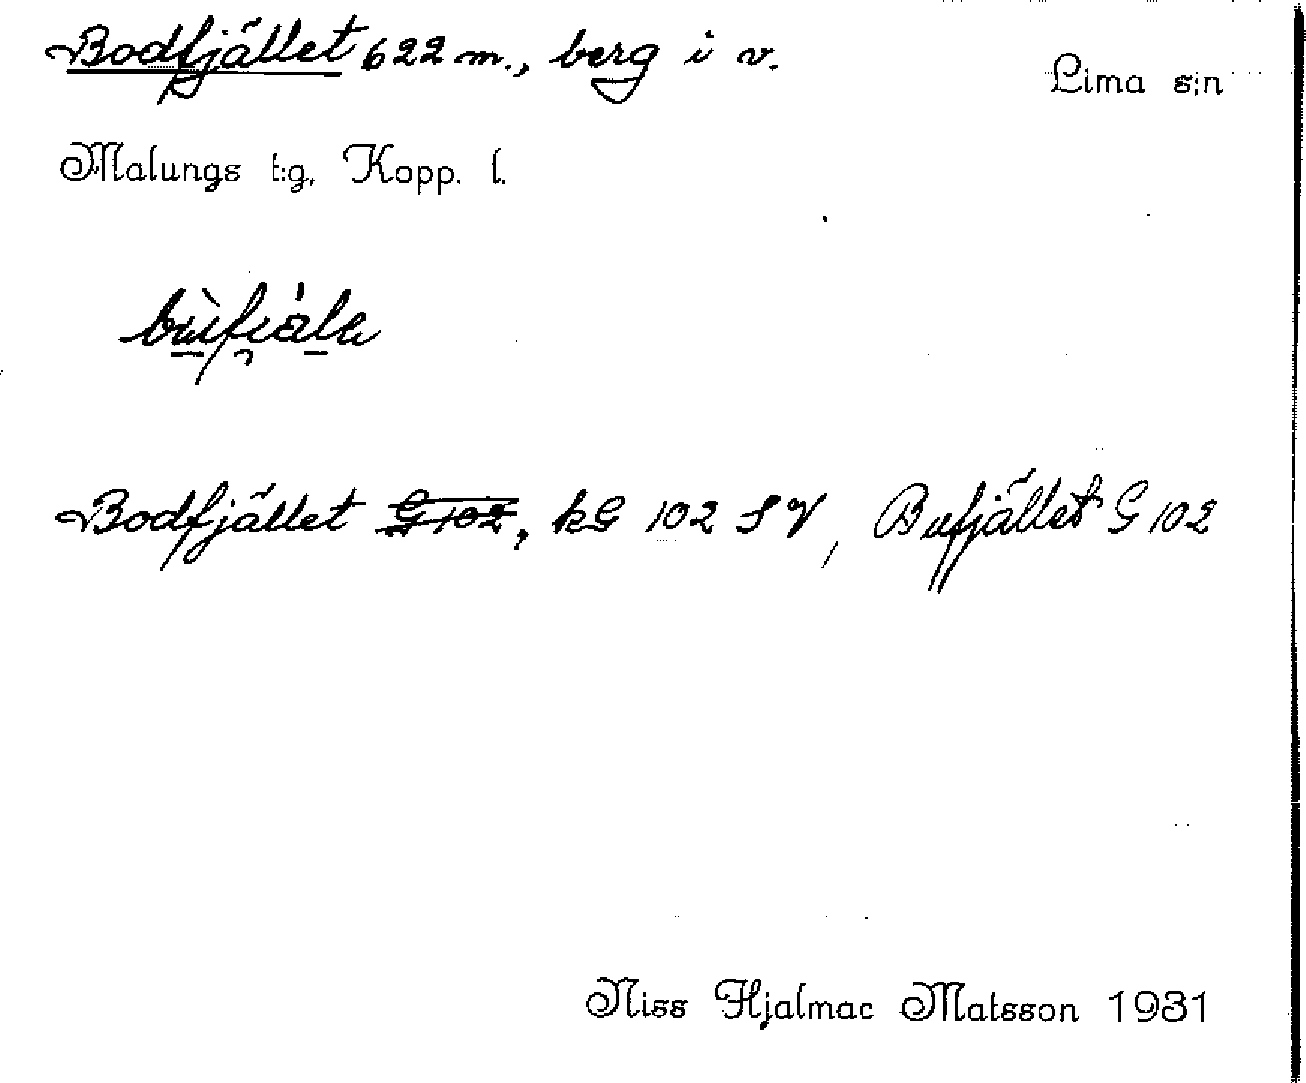 Bodfjället 622 m., berg i v.
Lima s:n
Malungs t:g, Kopp. l.
bùfiála
Bodfjället G 102, kG 102 SV, Bufjället G 102
Niss Hjalmar Matsson 1931